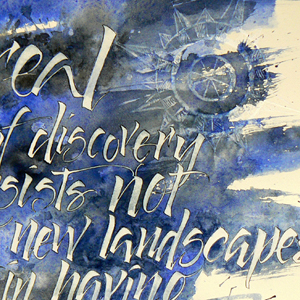 real
f discovery
sists not
new landscapes
in having